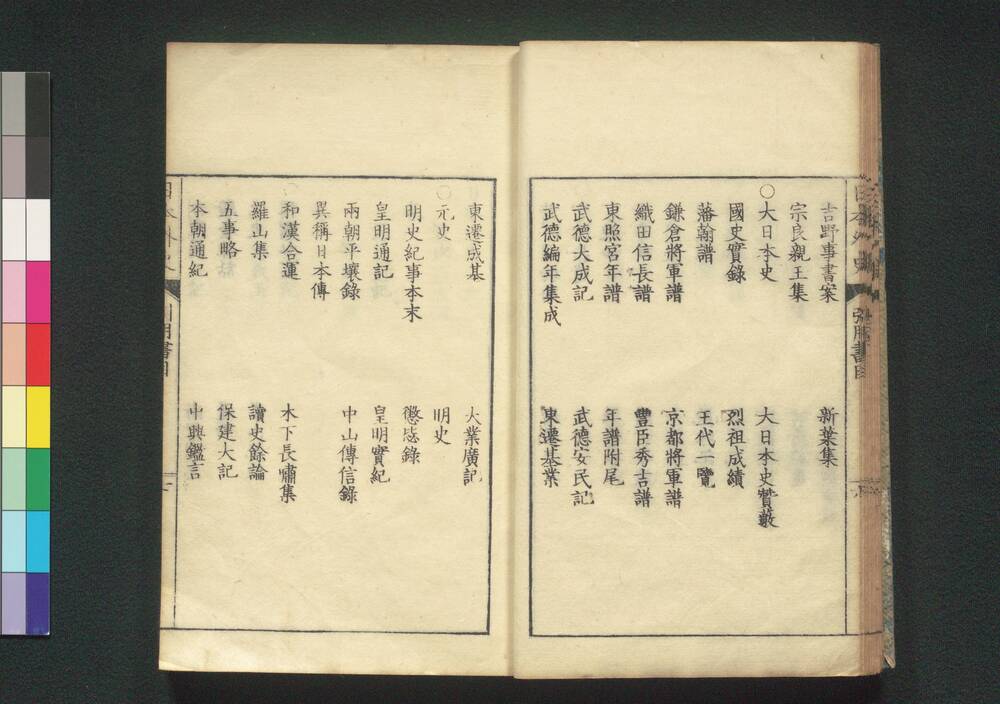 吉野事書案 新葉集
宗良親王集
○大日本史 大日本史贊藪
國史實錄 烈祖成績
藩翰譜 王代一覽
鎌倉將軍譜 京都將軍譜
織田信長譜 豐臣秀吉譜
東照宮年譜 年譜附尾
武德大成記 武德安民記
武德編年集成 東遷基業
東遷成基 大業廣記
○元史 明史
明史紀事本末 懲毖錄
皇明通記 皇明實紀
兩朝平壤錄 中山傳信錄
異稱日本傳
○和漢合運 木下長嘯集
羅山集 讀史餘論
五事略 保建大記
本朝通紀 中興鑑言
引用書目